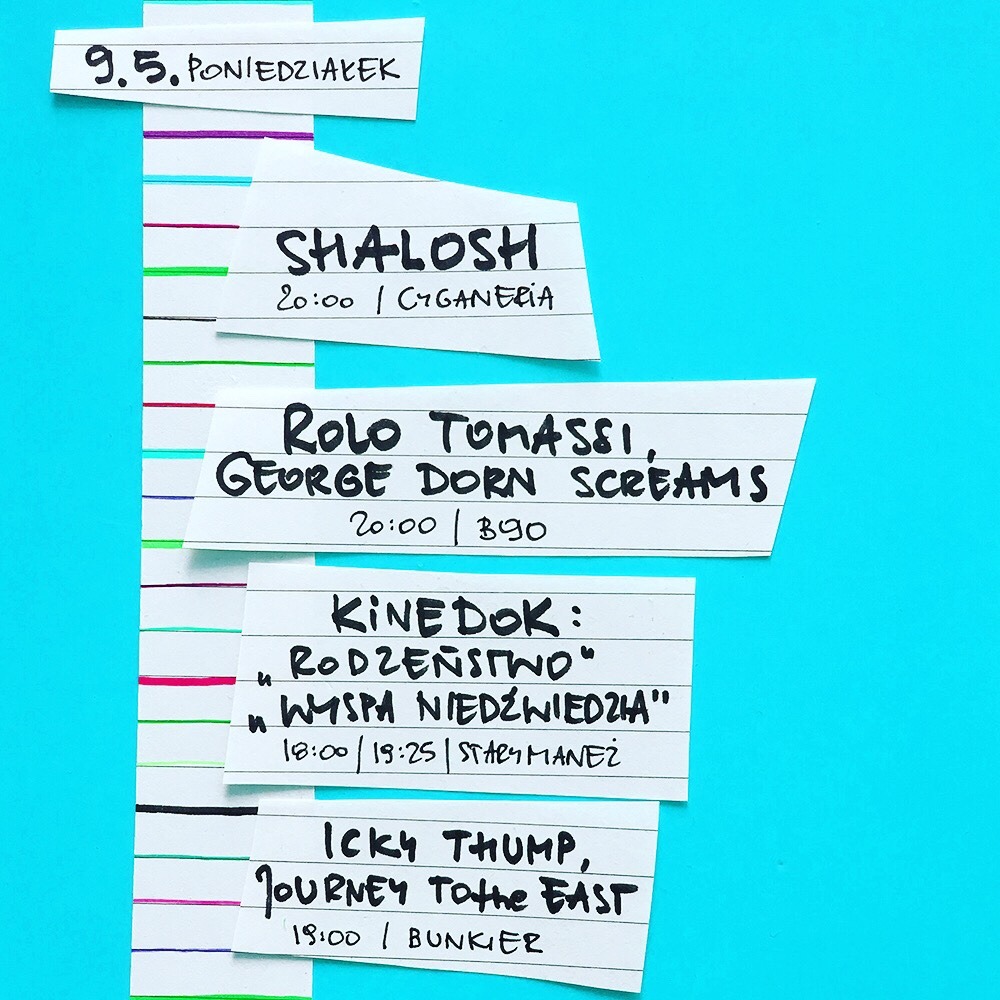 9.5. PONIEDZIAŁEK
SHALOSH
20:00 | CYGANERIA
ROLO TOMASSI,
GEORGE DORN SCREAMS
20:00 | B90
KINEDOK:
„RODZEŃSTWO"
„WYSPA NIEDŹWIEDZIA"
18:00 | 19:25 | STARY MANEŻ
ICKY THUMP,
JOURNEY TO the EAST
19:00 | BUNKIER